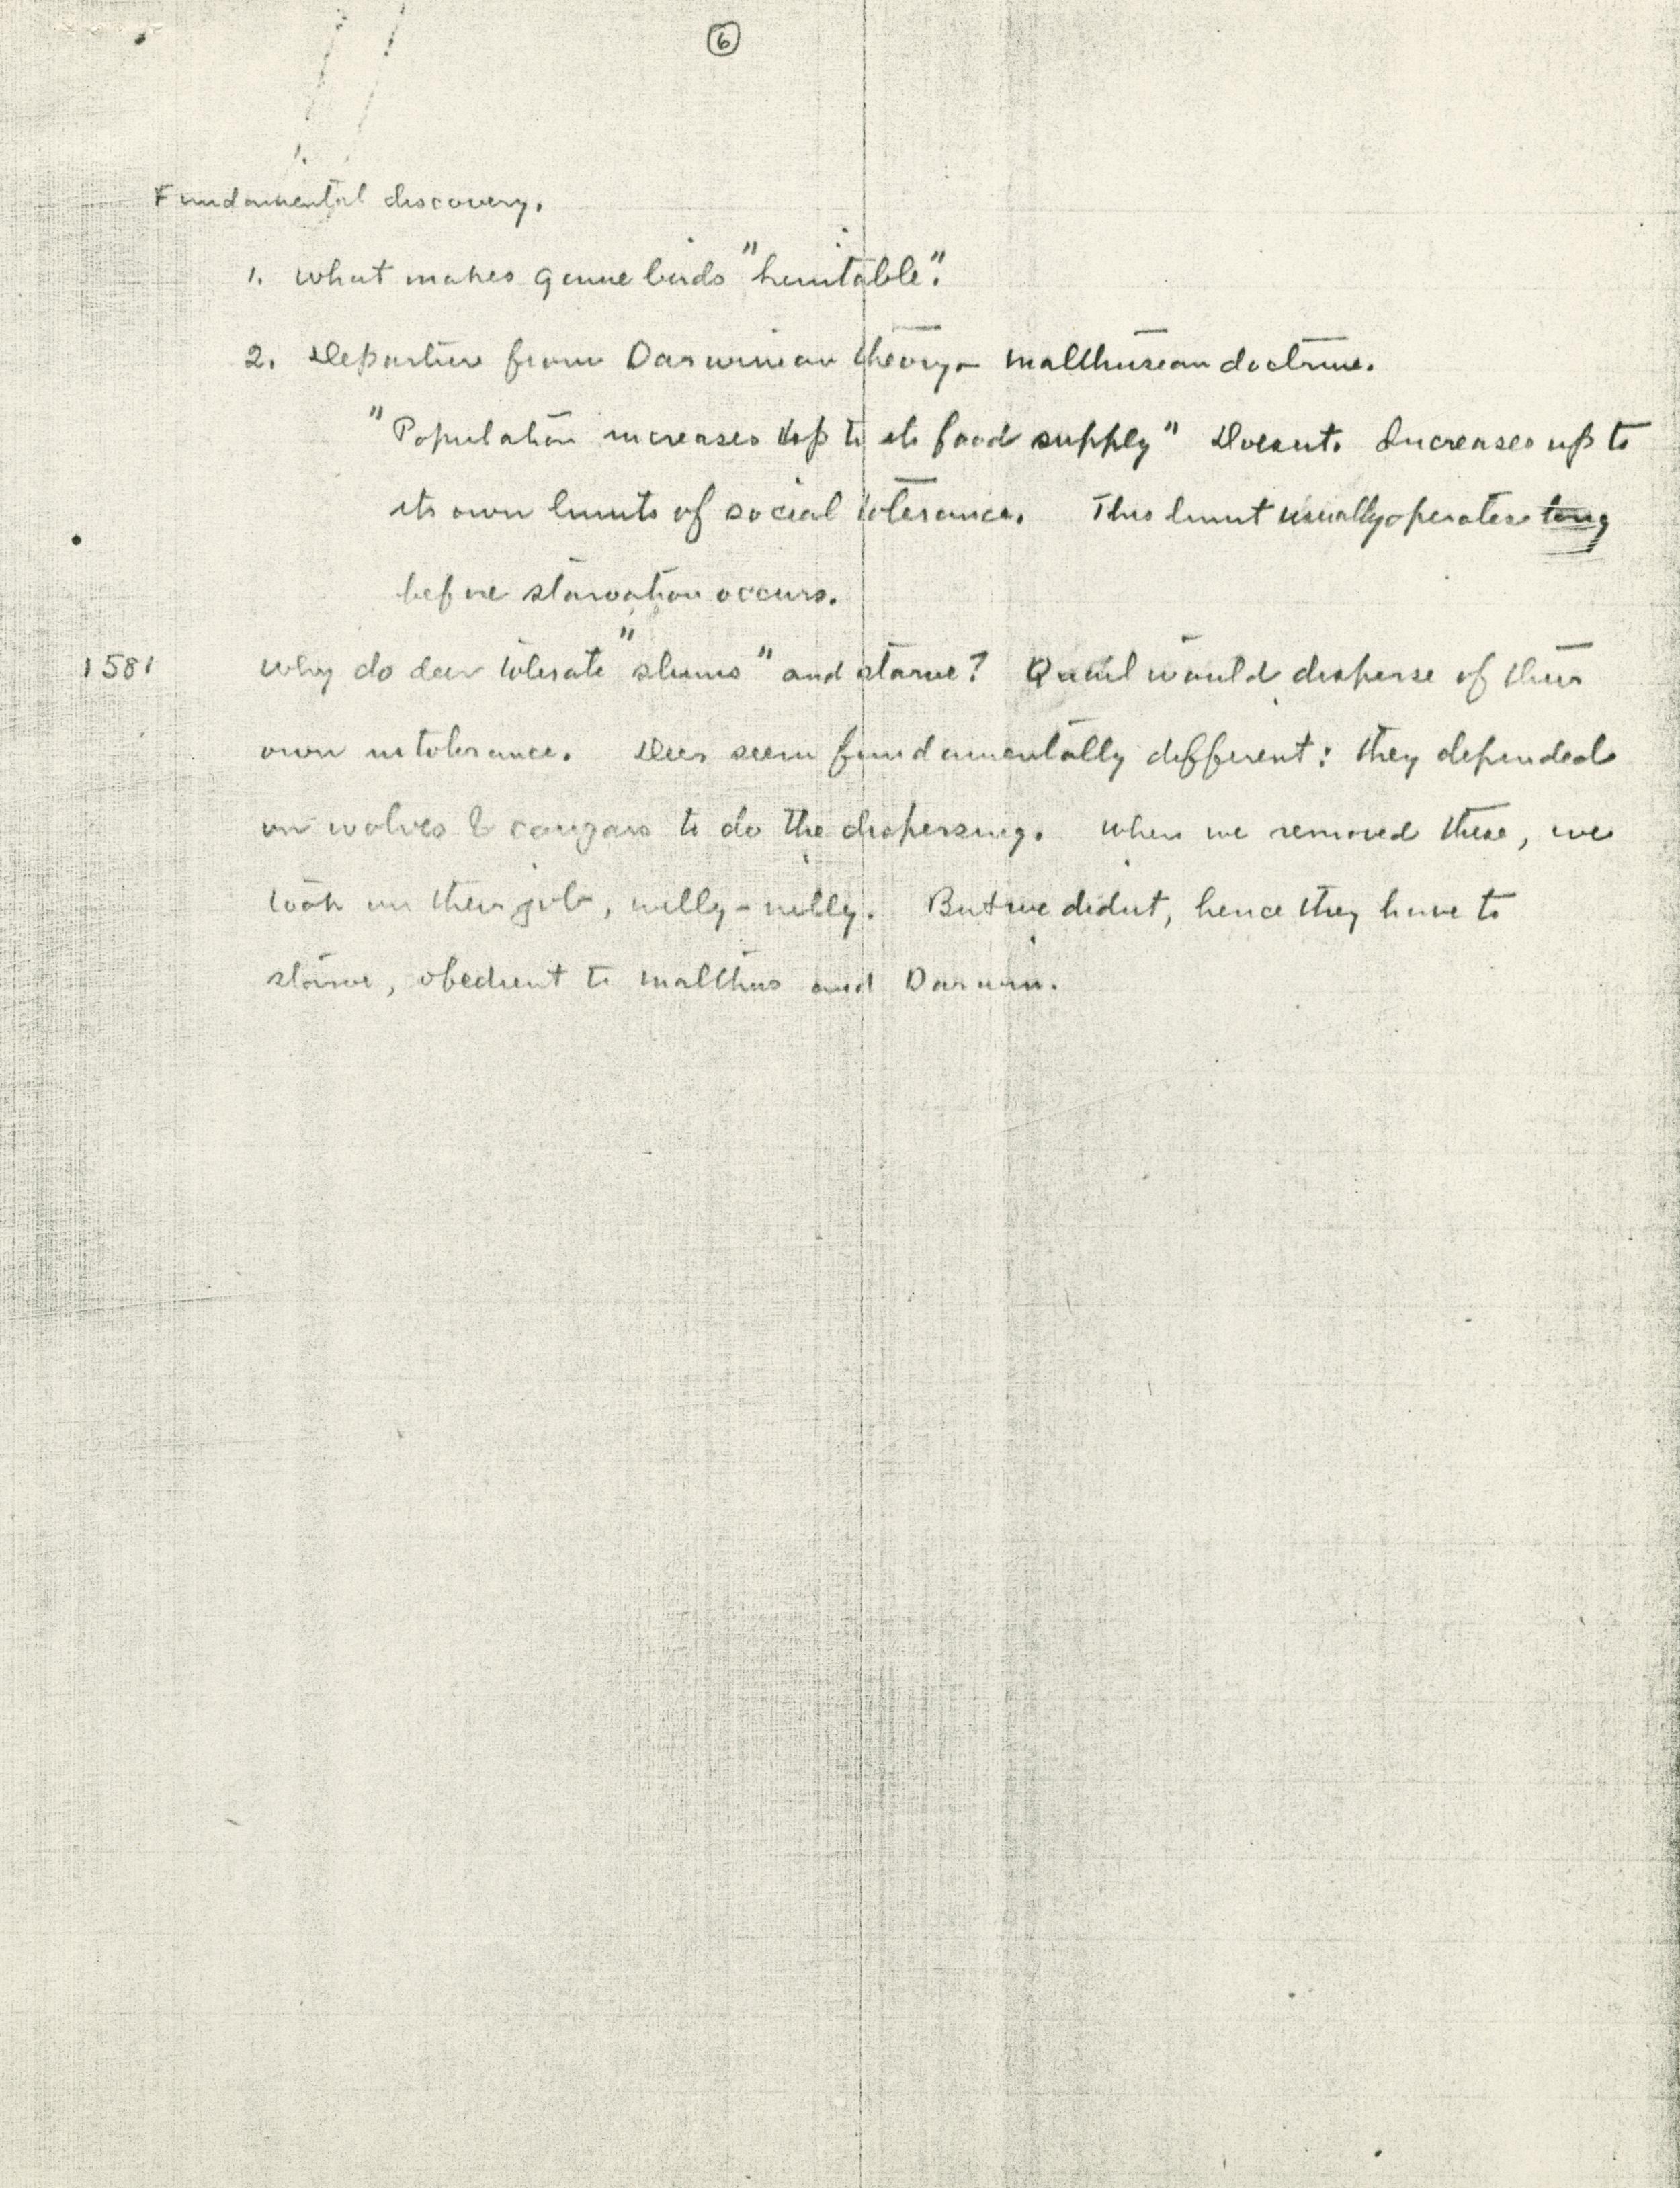 6
Fundamental discovery.
1. What makes game birds "huntable".
2. Departure from Darwinian theory - Malthusean doctrine.
"Population increases up to its food supply" Doesn't. Increases up to
its own limits of social tolerance. This limit usually operates long
before starvation occurs.
1581 Why do deer tolerate "slums" and starve? Quail would disperse of their
own intolerance. Deer seem fundamentally different: they depended
on wolves & cougars to do the dispersing. When we removed these, we
took on their job, willy-nilly. But we didnt, hence they have to
starve, obedient to Malthus and Darwin.